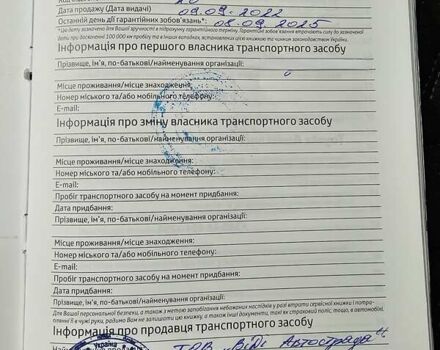 Дата продажу (Дата видачі) 09.09.2022
Останній день дії гарантійних зобов'язань* 08.09.2025
*Цю дату зазначено для Вашої зручності в підрахунку гарантійного терміну. Гарантійні зобов'язання втрачають силу до зазначеної
дати при досягненні 100 000 км пробігу та в інших випадках, встановлених цією книжкою та чинним законодавством України.
Інформація про першого власника транспортного засобу
Прізвище, ім'я, по-батькові/найменування організації:
Місце проживання/місце знаходження:
Номер міського та/або мобільного телефону:
E-mail:
Інформація про зміну власника транспортного засобу
Прізвище, ім'я, по-батькові/найменування організації:
Місце проживання/місце знаходження:
Номер міського та/або мобільного телефону:
E-mail:
Пробіг транспортного засобу на момент придбання:
Дата придбання:
Прізвище, ім'я, по-батькові/найменування організації:
Місце проживання/місце знаходження:
Номер міського та/або мобільного телефону:
E-mail:
Пробіг транспортного засобу на момент придбання:
Дата придбання:
Прізвище, ім'я, по-батькові/найменування організації:
Для Вашої персональної безпеки, а також з метою запобігання небажаних наслідків у разі втрати сервісної книжки і потра-
Інформація про продавця транспортного засобу
Україна
ТОВ „ВіДі Автострада"